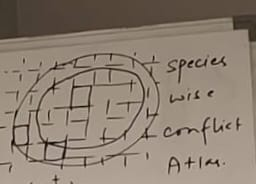 species
wise
conflict
Atlas.